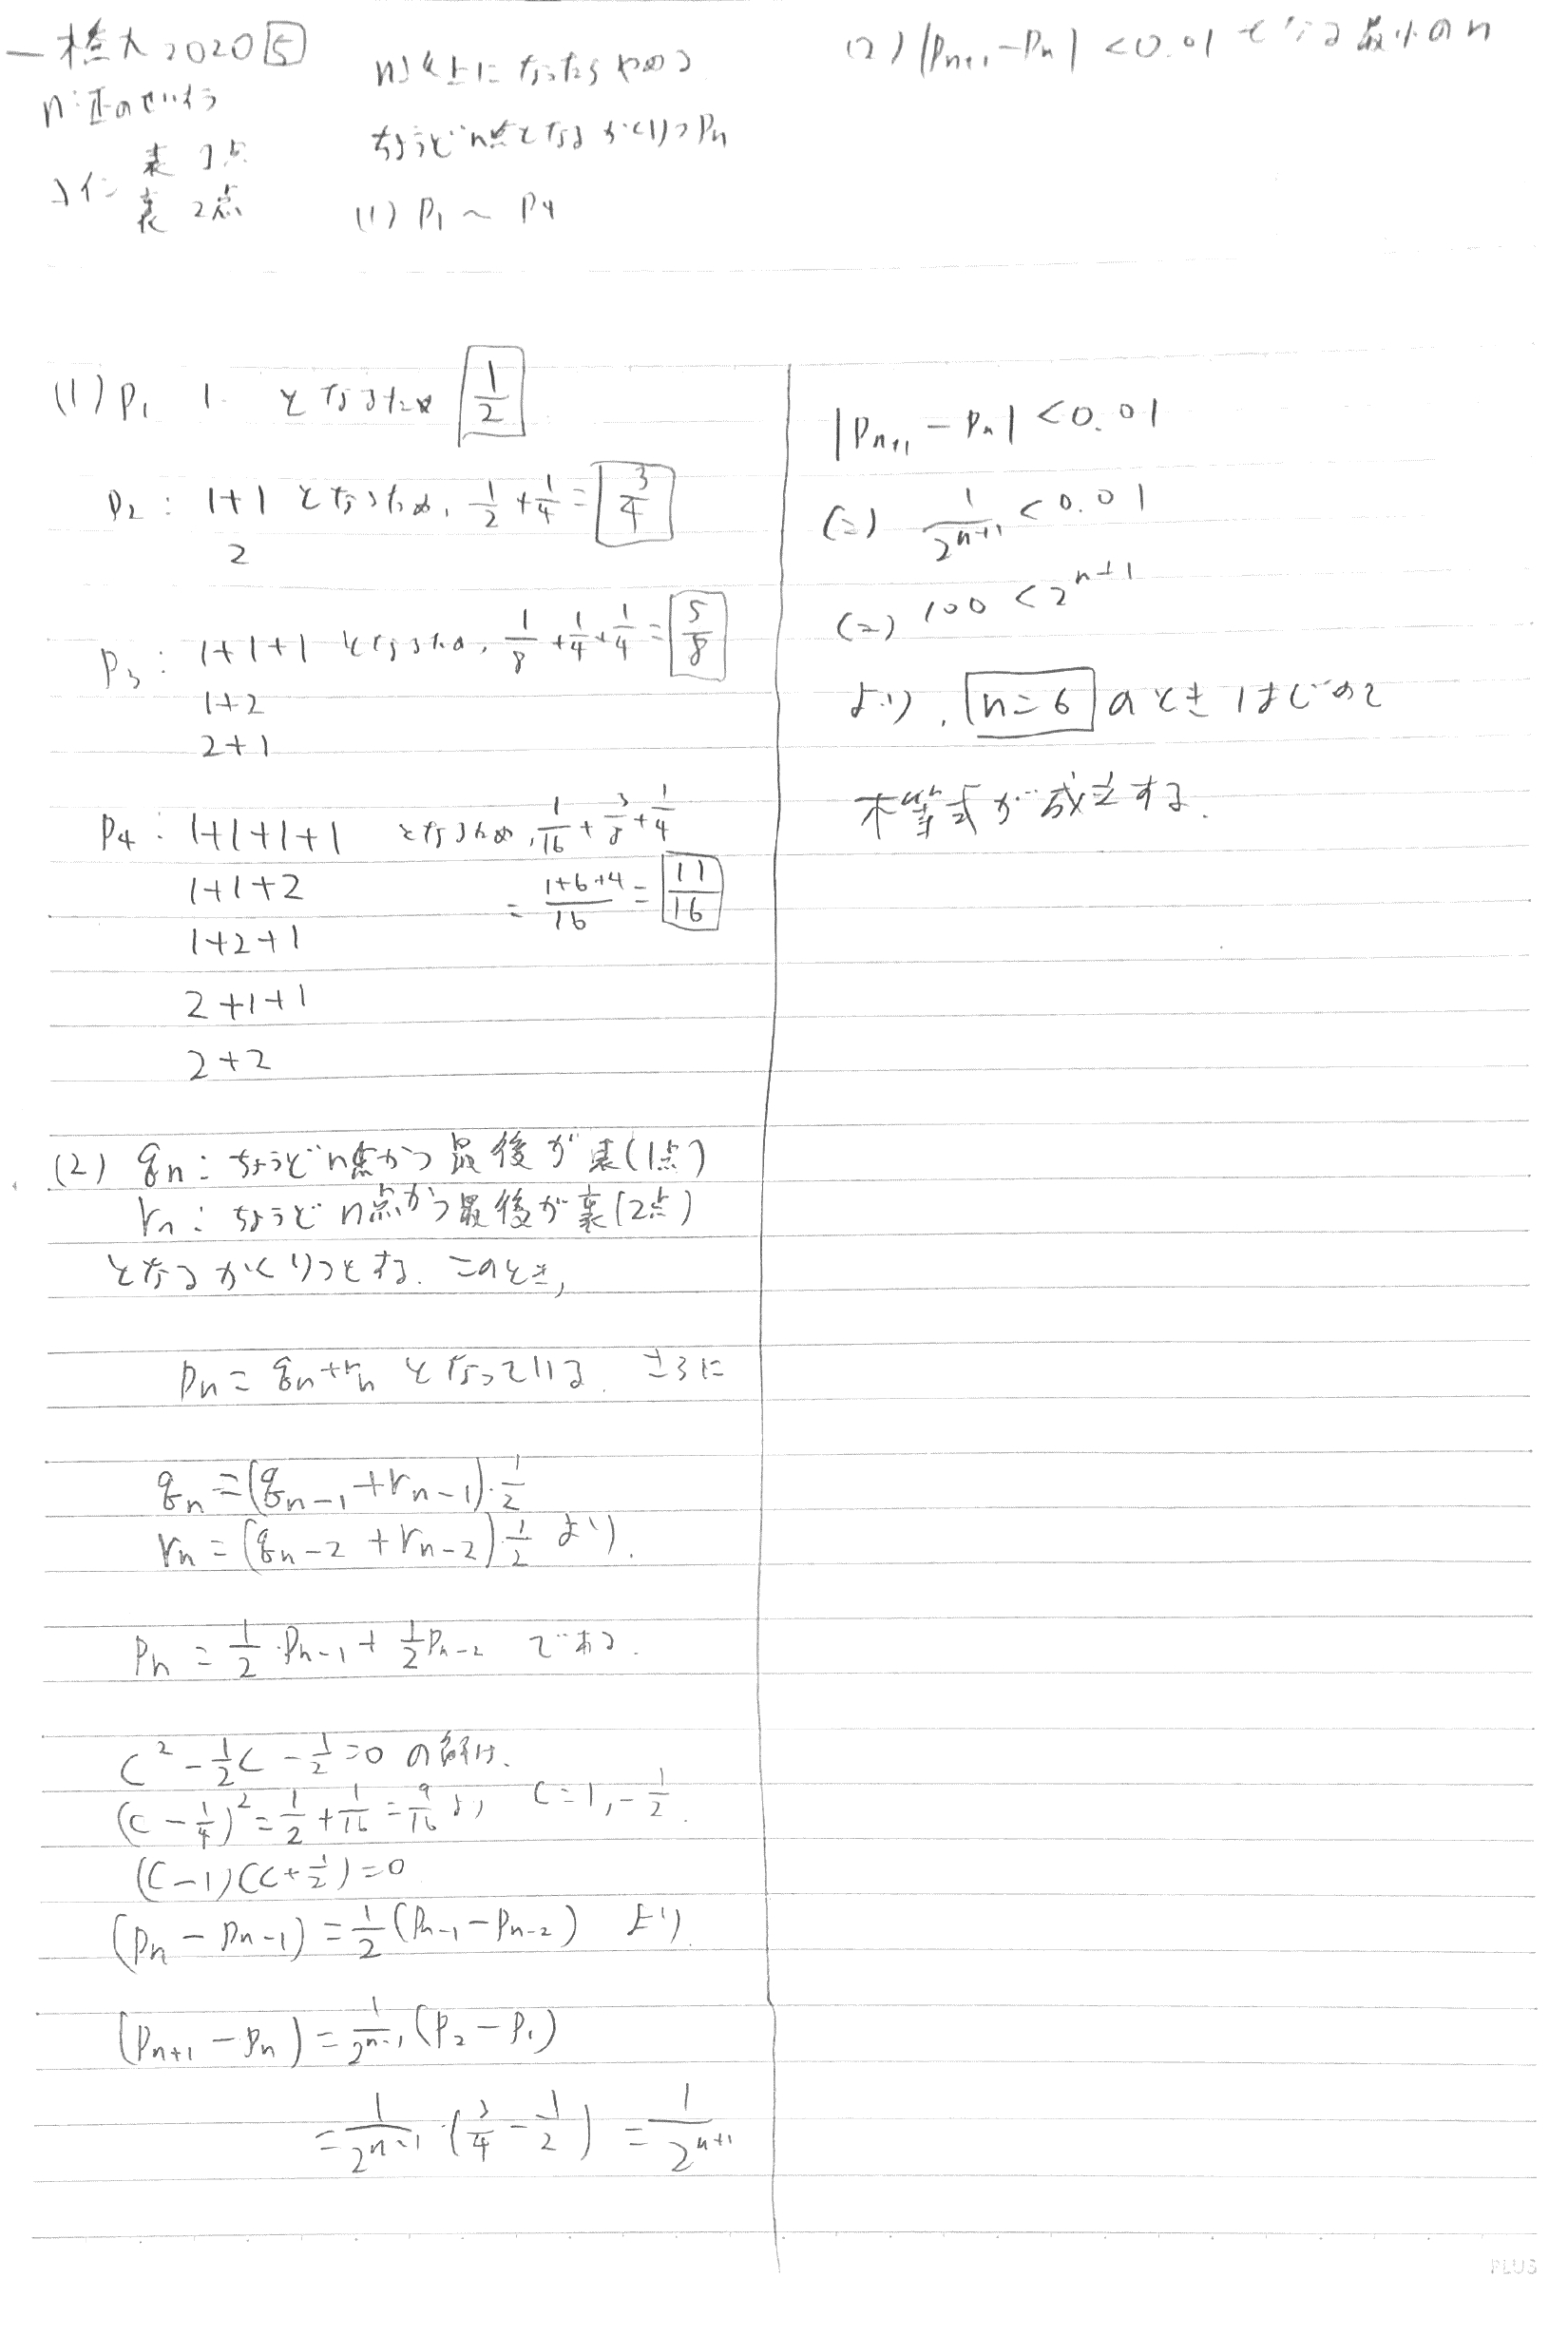 一橋大 2020 5
n:正のせいすう
コイン 表 1点
裏 2点
n以上になったらやめる
ちょうどn点となるかくりつ Pn
(1) P1 ~ P4
(2) |Pn+1 - Pn| < 0.01 となる最小の n
(1) P1 1 となるため 1/2
P2 : 1+1 となるため, 1/2 + 1/4 = 3/4
2
P3 : 1+1+1 となるため, 1/8 + 1/4 + 1/4 = 5/8
1+2
2+1
P4 : 1+1+1+1 となるため, 1/16 + 3/8 + 1/4
1+1+2 = (1+6+4)/16 = 11/16
1+2+1
2+1+1
2+2
(2) qn : ちょうどn点かつ最後が表(1点)
rn : ちょうどn点かつ最後が裏(2点)
となるかくりつとする. このとき,
Pn = qn + rn となっている. さらに
qn = (qn-1 + rn-1)・1/2
rn = (qn-2 + rn-2)・1/2 より.
Pn = 1/2・Pn-1 + 1/2 Pn-2 である.
C² - 1/2 C - 1/2 = 0 の解は.
(C - 1/4)² = 1/2 + 1/16 = 9/16 より C = 1, -1/2.
(C-1)(C+1/2) = 0
(Pn - Pn-1) = 1/2 (Pn-1 - Pn-2) より.
(Pn+1 - Pn) = 1/2ⁿ⁻¹ (P2 - P1)
= 1/2ⁿ⁻¹・(3/4 - 1/2) = 1/2ⁿ⁺¹
|Pn+1 - Pn| < 0.01
(=) 1/2ⁿ⁺¹ < 0.01
(=) 100 < 2ⁿ⁺¹
より, n=6 のときはじめて
不等式が成立する.
PLUS